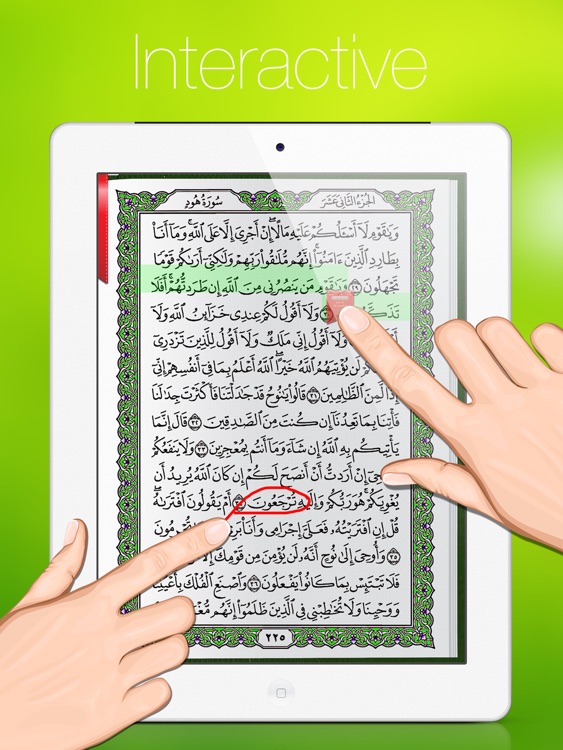 Interactive
الجزء الثاني عشر سورة هود
وَيَٰقَوْمِ لَآ أَسْـَٔلُكُمْ عَلَيْهِ مَالًا ۖ إِنْ أَجْرِىَ إِلَّا عَلَى ٱللَّهِ ۚ وَمَآ أَنَا۠
بِطَارِدِ ٱلَّذِينَ ءَامَنُوٓا۟ ۚ إِنَّهُم مُّلَٰقُوا۟ رَبِّهِمْ وَلَٰكِنِّىٓ أَرَىٰكُمْ قَوْمًا
تَجْهَلُونَ ٢٩ وَيَٰقَوْمِ مَن يَنصُرُنِى مِنَ ٱللَّهِ إِن طَرَدتُّهُمْ ۚ أَفَلَا
وَلَآ أَقُولُ لَكُمْ عِندِى خَزَآئِنُ ٱللَّهِ وَلَآ
وَلَآ أَقُولُ إِنِّى مَلَكٌ وَلَآ أَقُولُ لِلَّذِينَ تَزْدَرِىٓ
لَن يُؤْتِيَهُمُ ٱللَّهُ خَيْرًا ۖ ٱللَّهُ أَعْلَمُ بِمَا فِىٓ أَنفُسِهِمْ ۖ إِنِّىٓ
إِذًا لَّمِنَ ٱلظَّٰلِمِينَ ٣١ قَالُوا۟ يَٰنُوحُ قَدْ جَٰدَلْتَنَا فَأَكْثَرْتَ جِدَٰلَنَا
فَأْتِنَا بِمَا تَعِدُنَآ إِن كُنتَ مِنَ ٱلصَّٰدِقِينَ ٣٢ قَالَ إِنَّمَا
يَأْتِيكُم بِهِ ٱللَّهُ إِن شَآءَ وَمَآ أَنتُم بِمُعْجِزِينَ ٣٣ وَلَا يَنفَعُكُمْ
إِنْ أَرَدتُّ أَنْ أَنصَحَ لَكُمْ إِن كَانَ ٱللَّهُ يُرِيدُ أَن
يُغْوِيَكُمْ ۚ هُوَ رَبُّكُمْ وَإِلَيْهِ تُرْجَعُونَ ٣٤ أَمْ يَقُولُونَ ٱفْتَرَىٰهُ ۖ
قُلْ إِنِ ٱفْتَرَيْتُهُۥ فَعَلَىَّ إِجْرَامِى وَأَنَا۠
٣٥ وَأُوحِىَ إِلَىٰ نُوحٍ أَنَّهُۥ لَن يُؤْمِنَ مِن قَوْمِكَ
فَلَا تَبْتَئِسْ بِمَا كَانُوا۟ يَفْعَلُونَ ٣٦ وَٱصْنَعِ ٱلْفُلْكَ
وَوَحْيِنَا وَلَا تُخَٰطِبْنِى فِى ٱلَّذِينَ ظَلَمُوٓا۟ ۚ إِنَّهُم
٢٢٥